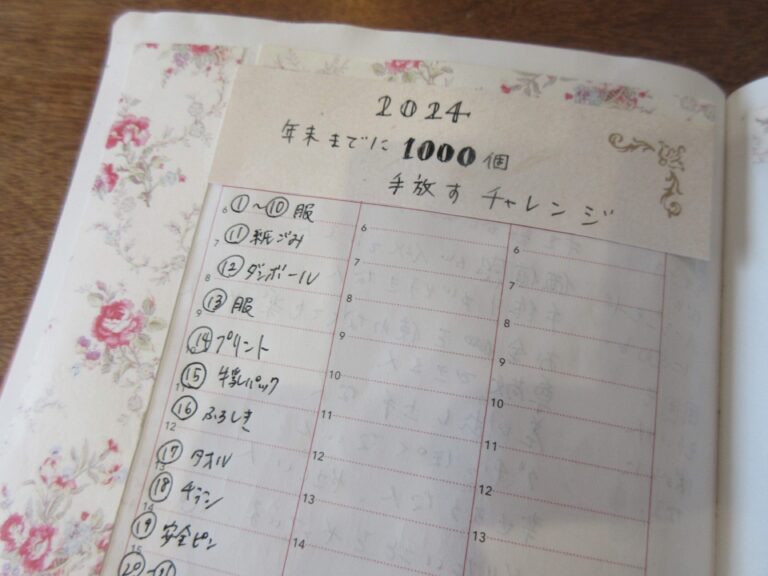 2024
年末までに 1000個
手放す チャレンジ
6 ①〜⑩ 服
7 ⑪ 紙ごみ
8 ⑫ ダンボール
9 ⑬ 服
⑭ プリント
⑮ 牛乳パック
⑯ ふろしき
12
⑰ タオル
⑱ チラシ
14
⑲ 安全ピン
15
⑳
6
7
8
9
10
11
12
13
14
6
7
8
9
10
11
12
13